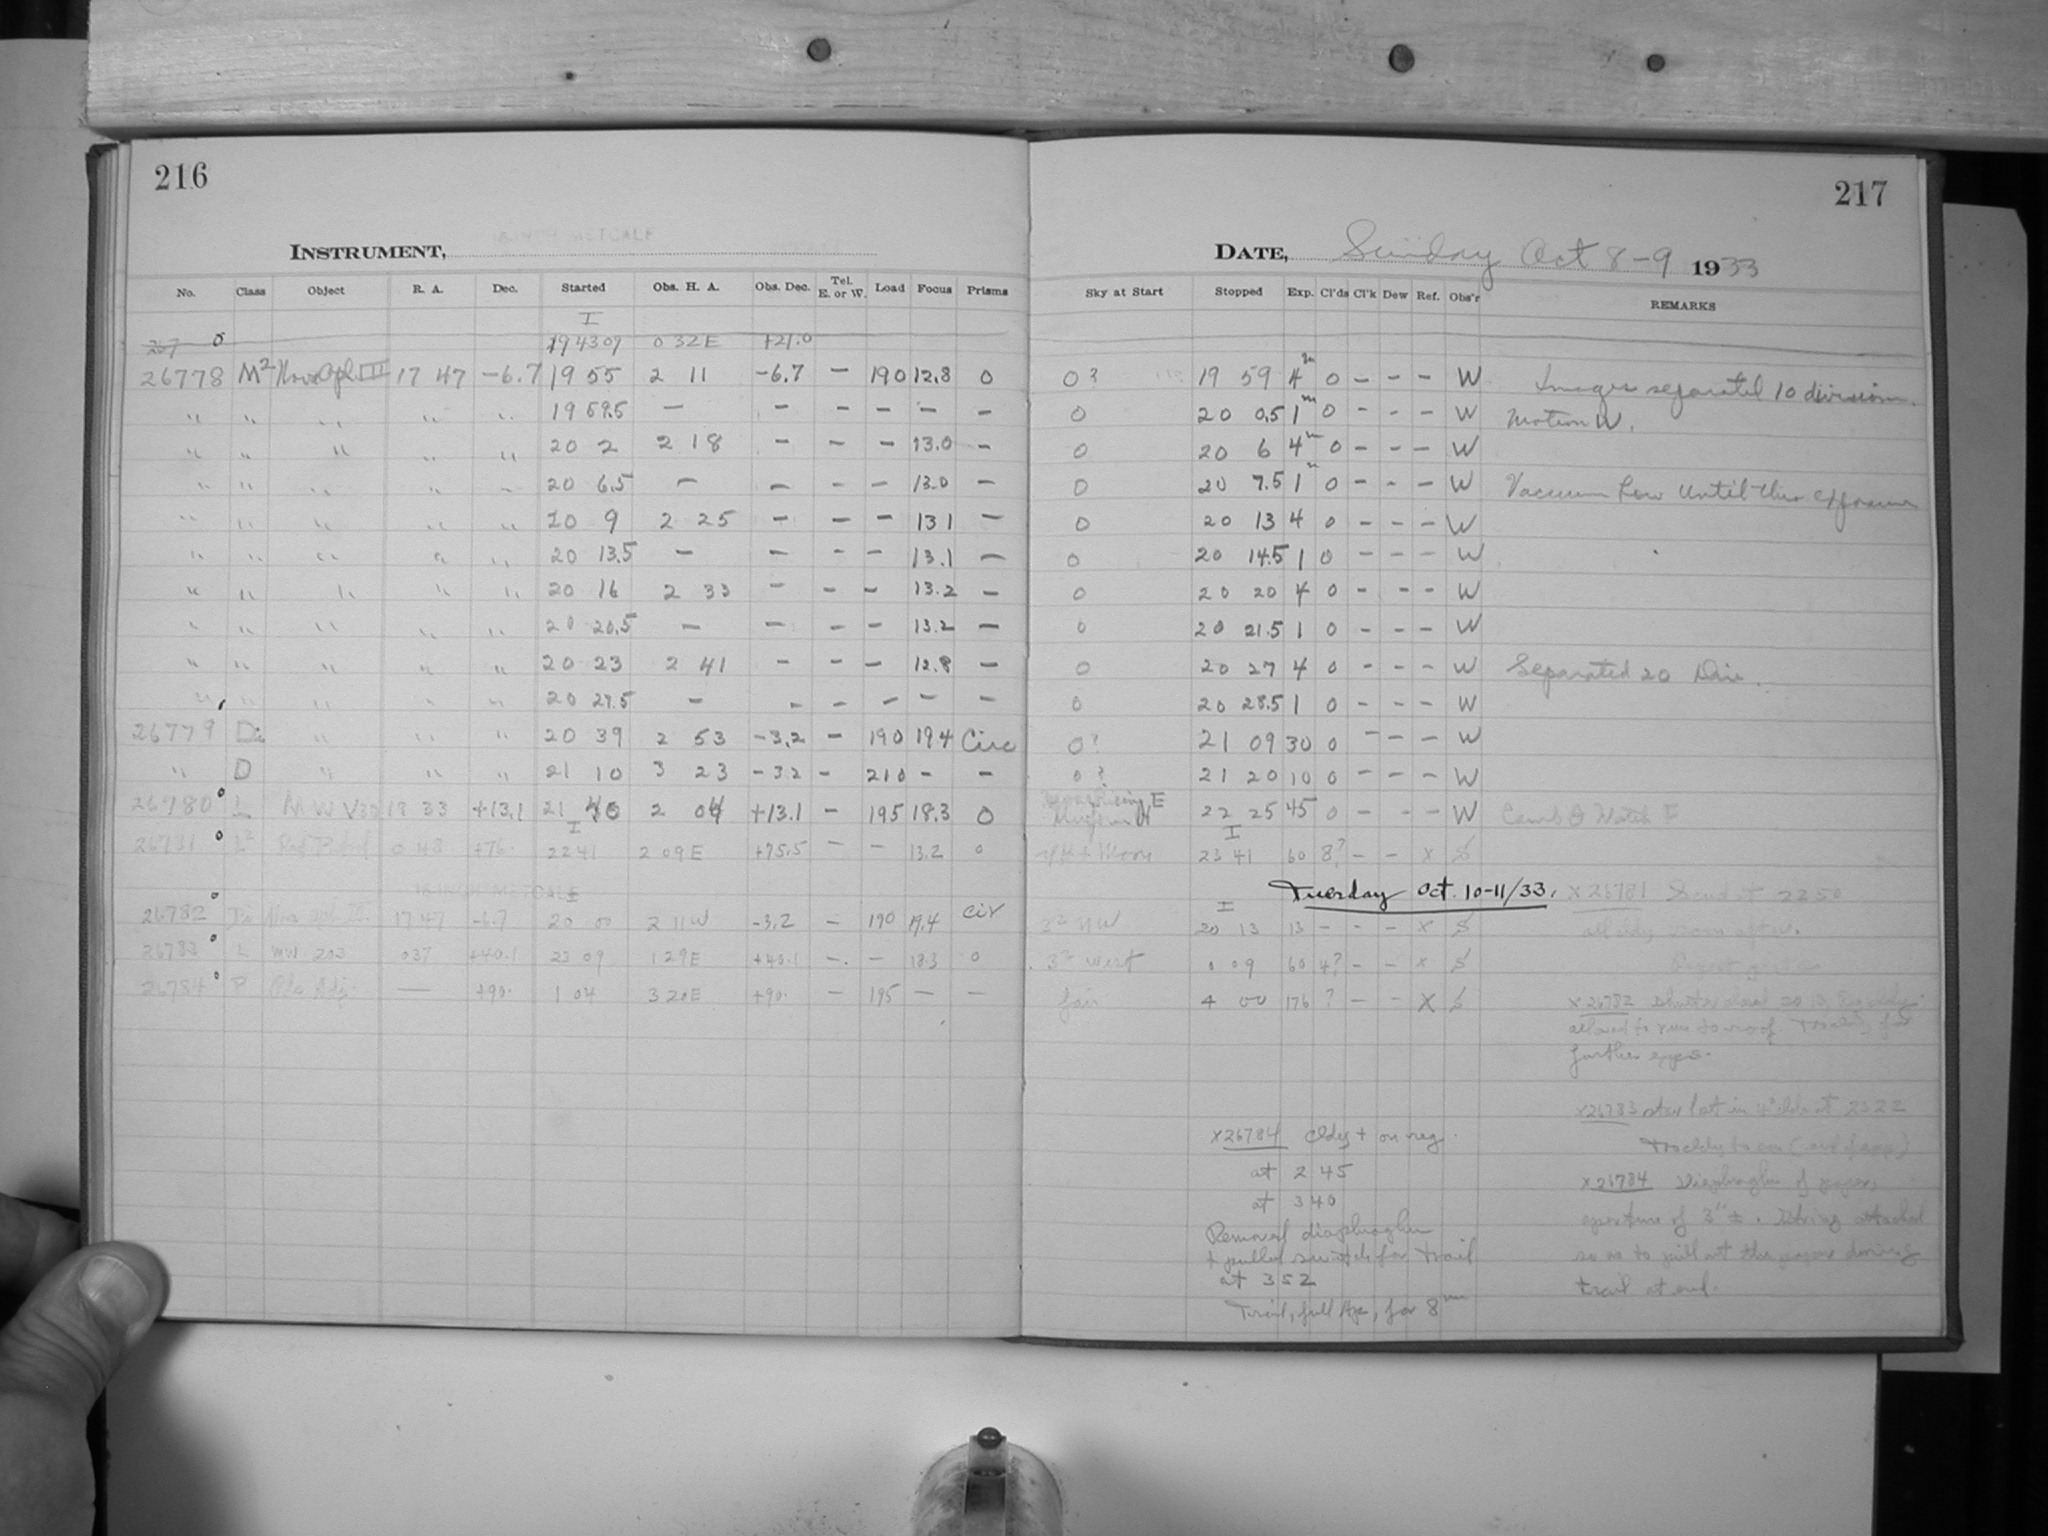 216
16-INCH METCALF
INSTRUMENT,
No. Class Object R. A. Dec. Started Obs. H. A. Obs. Dec. Tel. E. or W. Load Focus Prisms
I
267 19 43 07 0 32 E +21.0
26778 M² Nova Oph III 17 47 -6.7 19 55 2 11 -6.7 - 190 12.8 0
" " " " " 19 59.5 - - - - - -
" " " " " 20 2 2 18 - - - 13.0 -
" " " " " 20 6.5 - - - - 13.0 -
" " " " " 20 9 2 25 - - - 13.1 -
" " " " " 20 13.5 - - - - 13.1 -
" " " " " 20 16 2 33 - - - 13.2 -
" " " " " 20 20.5 - - - - 13.2 -
" " " " " 20 23 2 41 - - - 12.8 -
" " " " " 20 27.5 - - - - - -
26779 Di " " " 20 39 2 53 -3.2 - 190 19.4 Circ
" D " " " 21 10 3 23 -3.2 - 210 - -
26780 L MW V 19 33 +13.1 21 40 2 04 +13.1 - 195 18.3 0
I
26781 L² +76. 22 41 2 09 E +75.5 - - 13.2 0
16-INCH METCALF
26782 Di Nova Oph III 17 47 -6.7 20 00 2 11 W -3.2 - 190 19.4 Cir
26783 L MW 203 0 37 +40.1 23 09 1 29 E +40.1 - - 18.3 0
26784 P Pole Adj. - +90. 1 04 3 20 E +90. - 195 - -
217
DATE, Sunday Oct 8-9 1933
Sky at Start Stopped Exp. Cl'ds Cl'k Dew Ref. Obs'r REMARKS
0? 19 59 4m 0 - - - W Images separated 10 divisions.
0 20 0.5 1m 0 - - - W Motion W.
0 20 6 4m 0 - - - W
0 20 7.5 1m 0 - - - W Vacuum low until this exposure
0 20 13 4 0 - - - W
0 20 14.5 1 0 - - - W
0 20 20 4 0 - - - W
0 20 21.5 1 0 - - - W
0 20 27 4 0 - - - W Separated 20 Div.
0 20 28.5 1 0 - - - W
0? 21 09 30 0 - - - W
0? 21 20 10 0 - - - W
E 22 25 45 0 - - - W
I
+ Moon 23 41 60 8? - - x S
Tuesday Oct. 10-11/33. x 26781 at 22 50
I
3² NW 20 13 13 - - - x S
3² West 0 09 60 4? - - x S
fair 4 00 176 ? - - x S
x 26782 Shutter closed 20 13
allowed to run to roof. Too cldy for
further expos.
x 26783 star lost in clds at 23 22
Too cldy to see (end of exp)
x 26784 Cldy + on neg.
at 2 45
at 3 40
Removed diaphragm
+ pulled switch for trail
at 3 52
Trail, full Ap., for 8m
x 26784 Diaphragm of paper,
aperture of 3" ±. String attached
so as to pull out the paper during
trail at end.